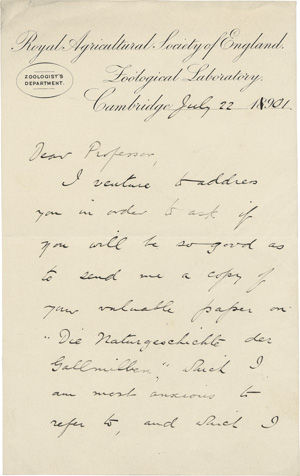 Royal Agricultural Society of England.
ZOOLOGIST'S
DEPARTMENT.
Zoological Laboratory,
Cambridge, July 22 1901.
Dear Professor,
I venture to address
you in order to ask if
you will be so good as
to send me a copy of
your valuable paper on
"Die Naturgeschichte der
Gallmilben", which I
am most anxious to
refer to, and which I